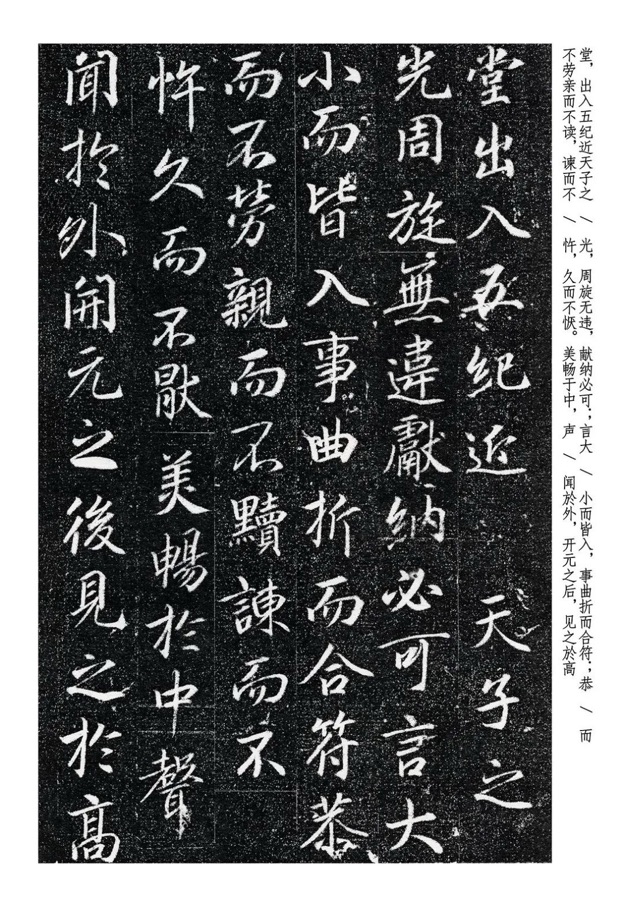 堂，出入五纪近天子之 \ 光，周旋无违，献纳必可；言大 \ 小而皆入，事曲折而合符；恭 \ 而
不劳亲而不读，谏而不 \ 忤，久而不恹。美畅于中，声 \ 闻於外，开元之后，见之於高
堂出入五紀近 天子之
光周旋無違獻納必可言大
小而皆入事曲折而合符恭
而不勞親而不黷諫而不
忤久而不猒美暢於中聲
聞於外開元之後見之於髙